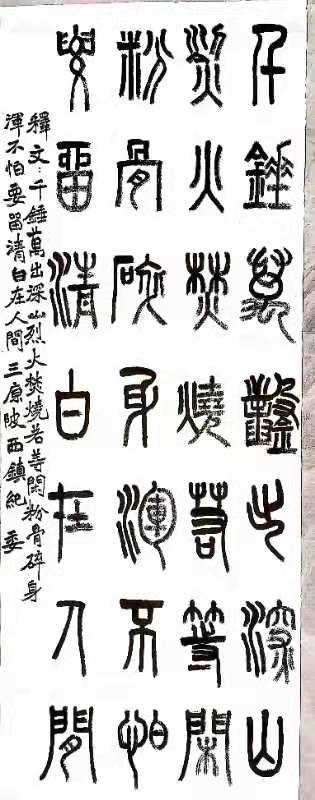 千錘萬鑿出深山
烈火焚燒若等閑
粉骨碎身渾不怕
要留清白在人間
釋文：千錘萬出深山烈火焚燒若等閑粉骨碎身
渾不怕要留清白在人間三原陂西鎮紀委